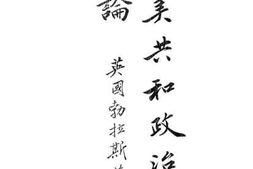 美共和政治
論
英國勃拉斯